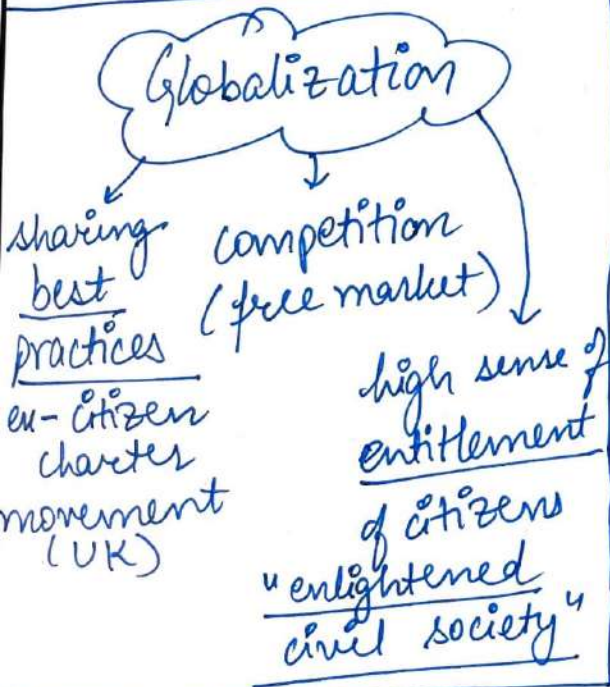 Globalization
sharing
best
practices
ex- citizen
charter
movement
(UK)
competition
(free market)
high sense of
entitlement
of citizens
"enlightened
civil society"